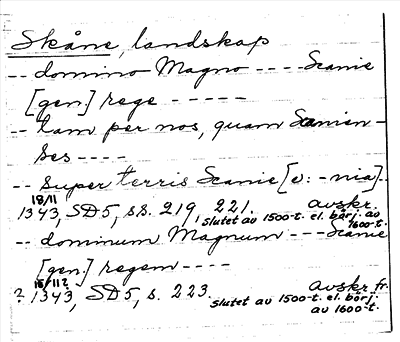 Skåne, landskap
-- domino Magno ---- Scanie
[gen.] rege -----
-- tam per nos, quam Scanien-
ses ----
-- super terris Scanie [v: -nia] --
18/11
1343, SD5, ss. 219, 221. avskr.
slutet av 1500-t. el. börj. av
1600-t.
-- dominum Magnum --- Scanie
[gen.] regem ----
15/11?
? 1343, SD5, s. 223. avskr. fr.
slutet av 1500-t. el. börj.
av 1600-t.